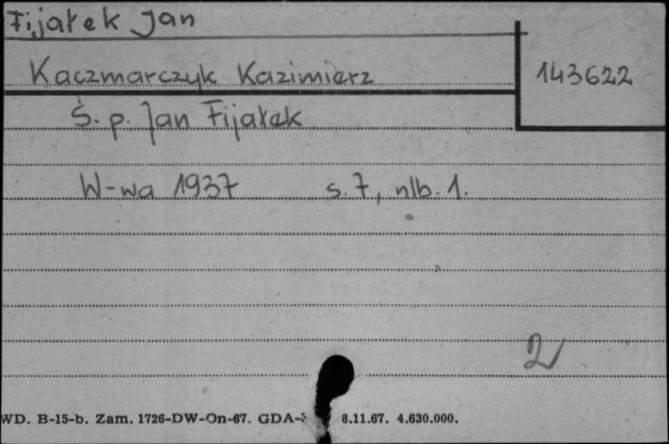 Fijałek Jan
Kaczmarczyk Kazimierz
143622
Ś. p. Jan Fijałek
W-wa 1937 s. 7, nlb. 1.
2
WD. B-15-b. Zam. 1726-DW-On-67. GDA- 8.11.67. 4.630.000.